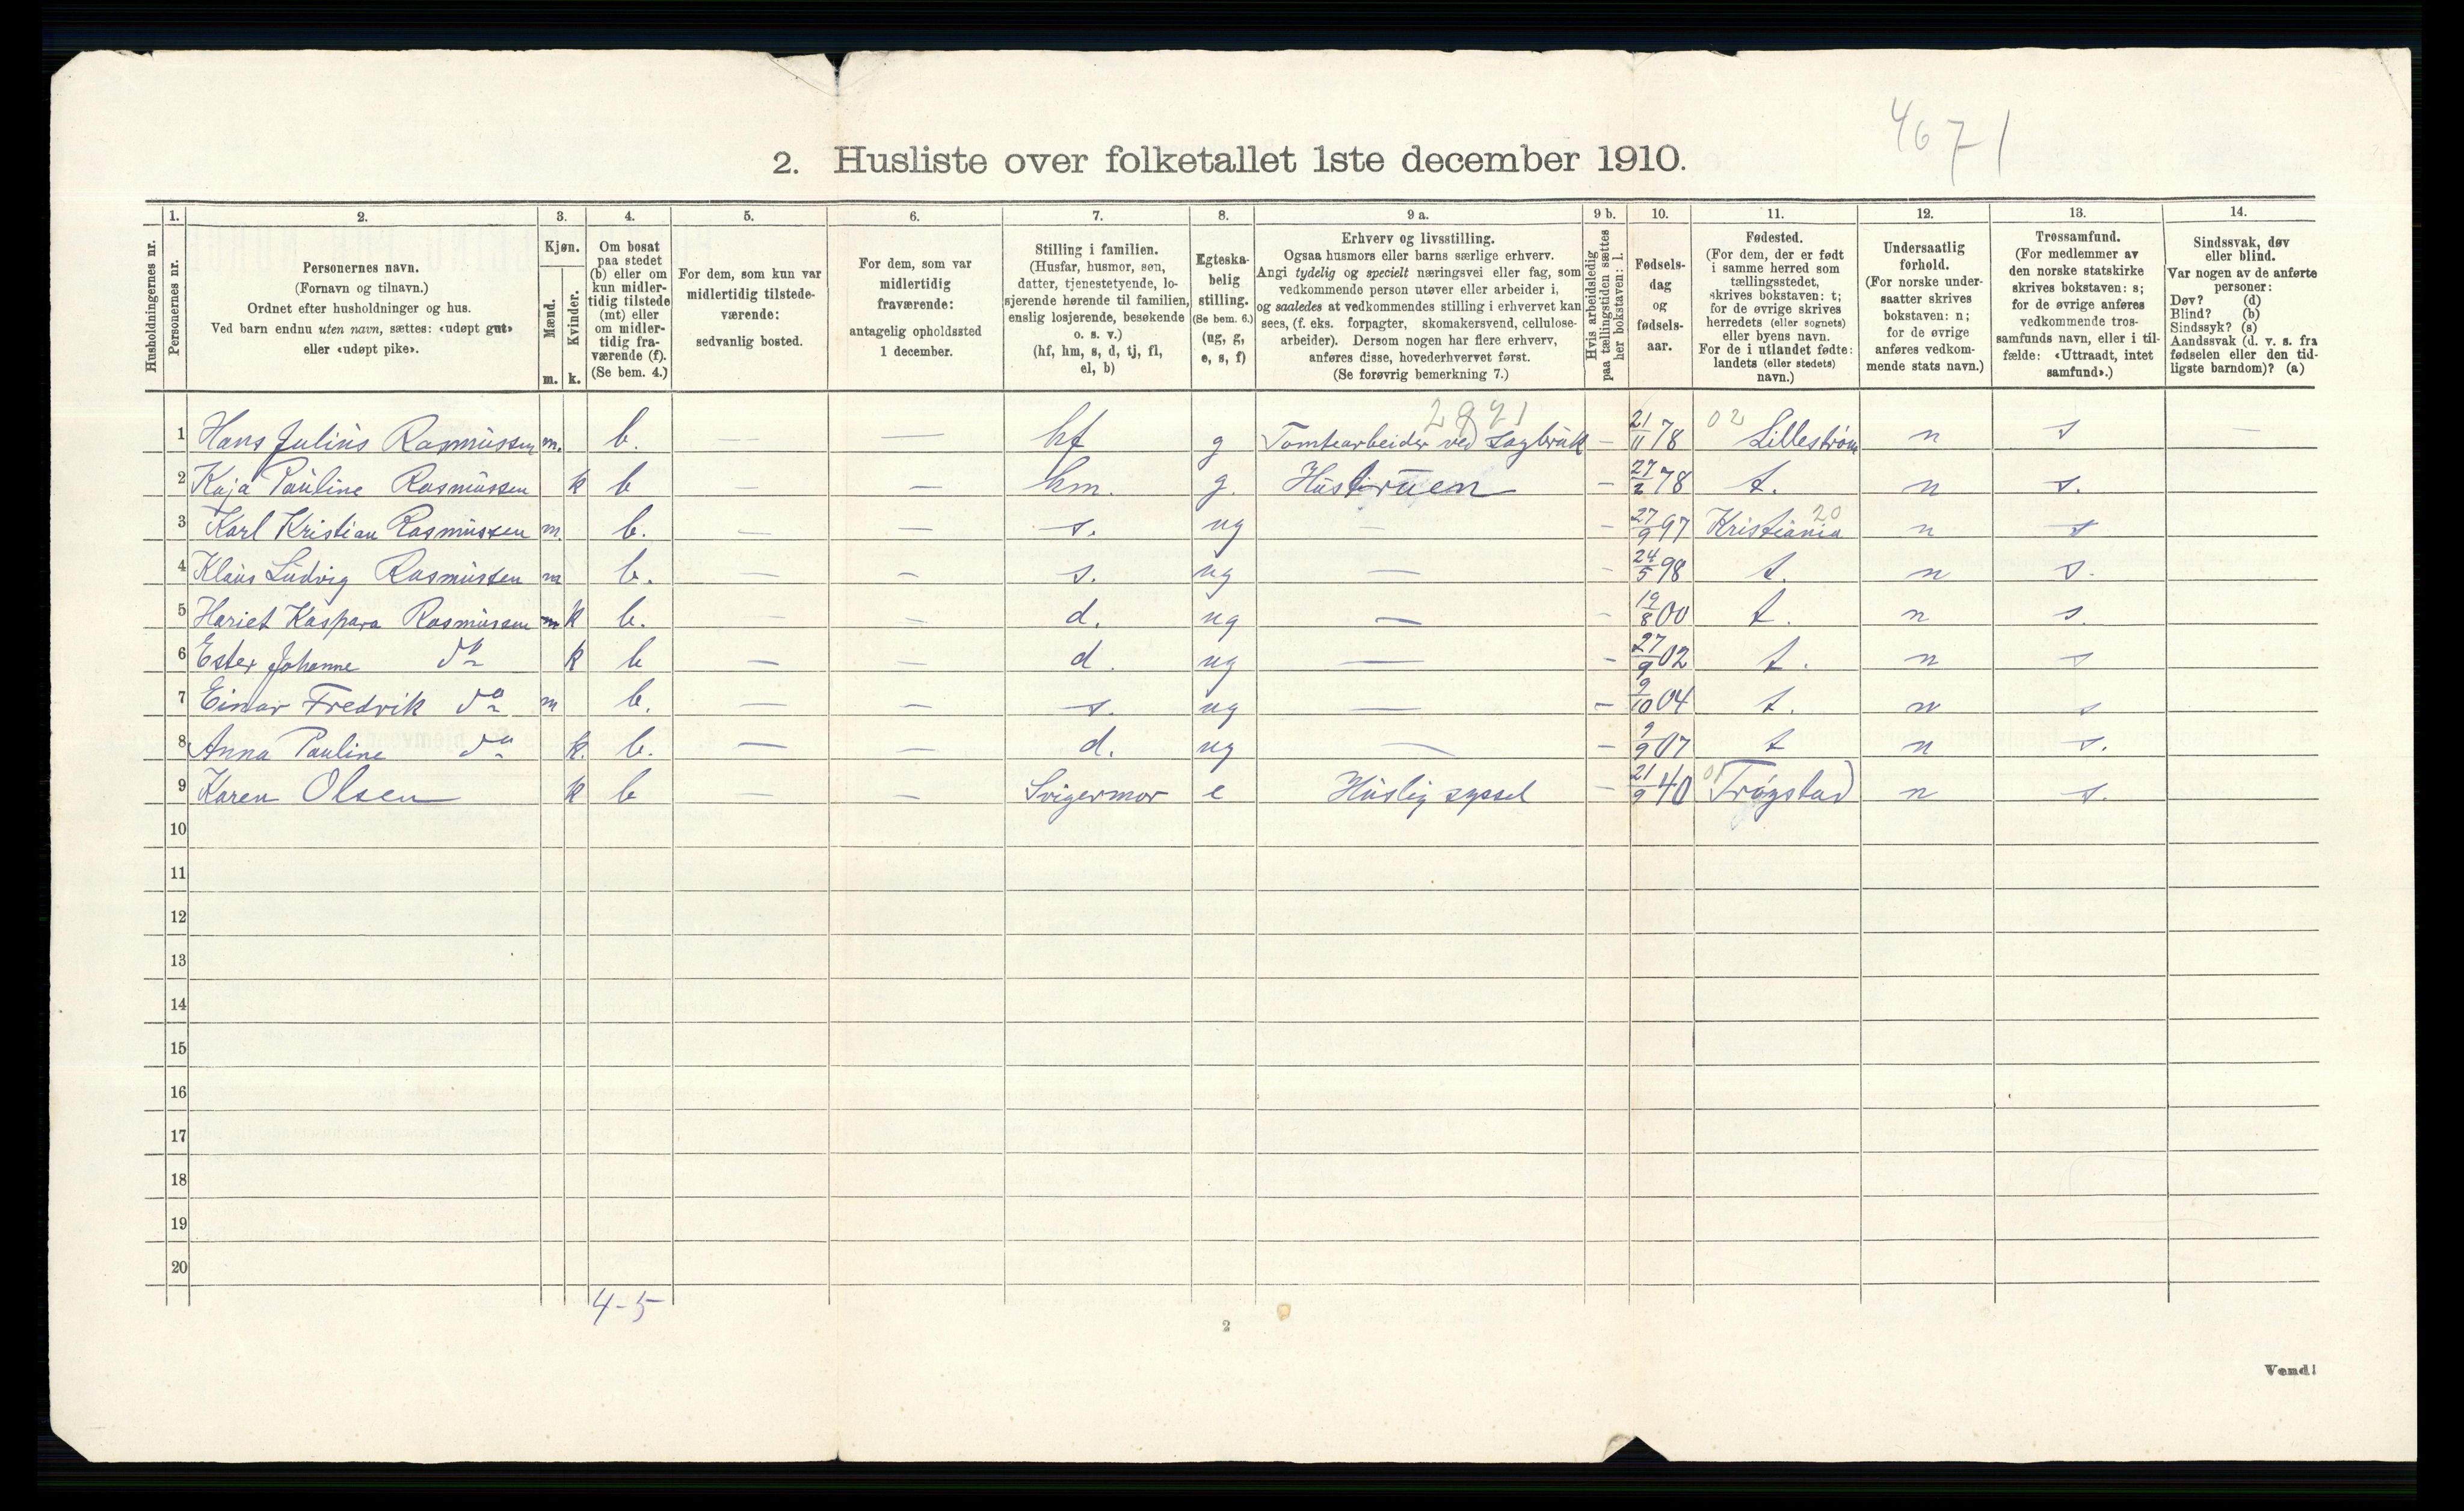 4671
2. Husliste over folketallet 1ste december 1910.
1. 2. 3. 4. 5. 6. 7. 8. 9 a. 9 b. 10. 11. 12. 13. 14.
Husholdningernes nr.
Personernes nr.
Personernes navn.
(Fornavn og tilnavn.)
Ordnet efter husholdninger og hus.
Ved barn endnu uten navn, sættes: «udøpt gut»
eller «udøpt pike».
Kjøn.
Mænd.
Kvinder.
m. k.
Om bosat
paa stedet
(b) eller om
kun midler-
tidig tilstede
(mt) eller
om midler-
tidig fra-
værende (f).
(Se bem. 4.)
For dem, som kun var
midlertidig tilstede-
værende:
sedvanlig bosted.
For dem, som var
midlertidig
fraværende:
antagelig opholdssted
1 december.
Stilling i familien.
(Husfar, husmor, søn,
datter, tjenestetyende, lo-
sjerende hørende til familien,
enslig losjerende, besøkende
o. s. v.)
(hf, hm, s, d, tj, fl,
el, b)
Egteska-
belig
stilling.
(Se bem. 6.)
(ug, g,
e, s, f)
Erhverv og livsstilling.
Ogsaa husmors eller barns særlige erhverv.
Angi tydelig og specielt næringsvei eller fag, som
vedkommende person utøver eller arbeider i,
og saaledes at vedkommendes stilling i erhvervet kan
sees, (f. eks. forpagter, skomakersvend, cellulose-
arbeider). Dersom nogen har flere erhverv,
anføres disse, hovederhvervet først.
(Se forøvrig bemerkning 7.)
Hvis arbeidsledig
paa tællingstiden sættes
her bokstaven: l.
Fødsels-
dag
og
fødsels-
aar.
Fødested.
(For dem, der er født
i samme herred som
tællingsstedet,
skrives bokstaven: t;
for de øvrige skrives
herredets (eller sognets)
eller byens navn.
For de i utlandet fødte:
landets (eller stedets)
navn.)
Undersaatlig
forhold.
(For norske under-
saatter skrives
bokstaven: n;
for de øvrige
anføres vedkom-
mende stats navn.)
Trossamfund.
(For medlemmer av
den norske statskirke
skrives bokstaven: s;
for de øvrige anføres
vedkommende tros-
samfunds navn, eller i til-
fælde: «Uttraadt, intet
samfund».)
Sindssvak, døv
eller blind.
Var nogen av de anførte
personer:
Døv? (d)
Blind? (b)
Sindssyk? (s)
Aandssvak (d. v. s. fra
fødselen eller den tid-
ligste barndom)? (a)
02
1 Hans Julius Rasmussen m. b. — — hf g Tomtearbeider ved Sagbruk – 21/11 78 Lillestrøm n s —
2 Kaja Pauline Rasmussen k b — — hm. g. Hustruen – 27/2 78 t. n s.
20
3 Karl Kristian Rasmussen m. b. — — s. ug – – 27/9 97 Kristiania n s
4 Klaus Ludvig Rasmussen m b. — – s. ug — – 24/5 98 t. n s.
5 Hariet Kaspara Rasmussen m k b. — — d. ug — – 19/8 00 t. n s.
6 Ester Johanne do k b — — d. ug — – 27/9 02 t. n s
7 Einar Fredrik do m b. — — s. ug — – 9/10 04 t. n s
8 Anna Pauline do k. b. — — d. ug — – 9/9 07 t n s.
01
9 Karen Olsen k b — — Svigermor e Huslig syssel – 21/9 40 Trøgstad n s.
10
11
12
13
14
15
16
17
18
19
20
4-5
2
Vend!